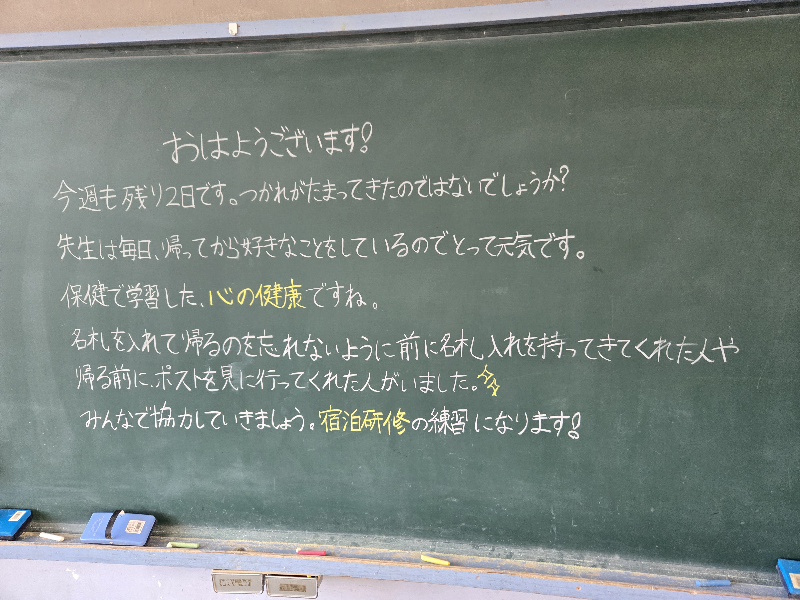 おはようございます!
今週も残り2日です。つかれがたまってきたのではないでしょうか?
先生は毎日、帰ってから好きなことをしているのでとって元気です。
保健で学習した、心の健康ですね。
名札を入れて帰るのを忘れないように前に名札し入れを持ってきてくれた人や
帰る前に、ポストを見に行ってくれた人がいました。
みんなで協力していきましょう。宿泊研修の練習になります!